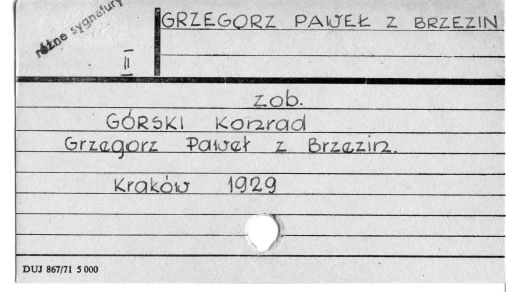 różne sygnatury
GRZEGORZ PAWEŁ Z BRZEZIN
zob.
GÓRSKI Konrad
Grzegorz Paweł z Brzezin.
Kraków 1929
DUJ 867/71 5 000